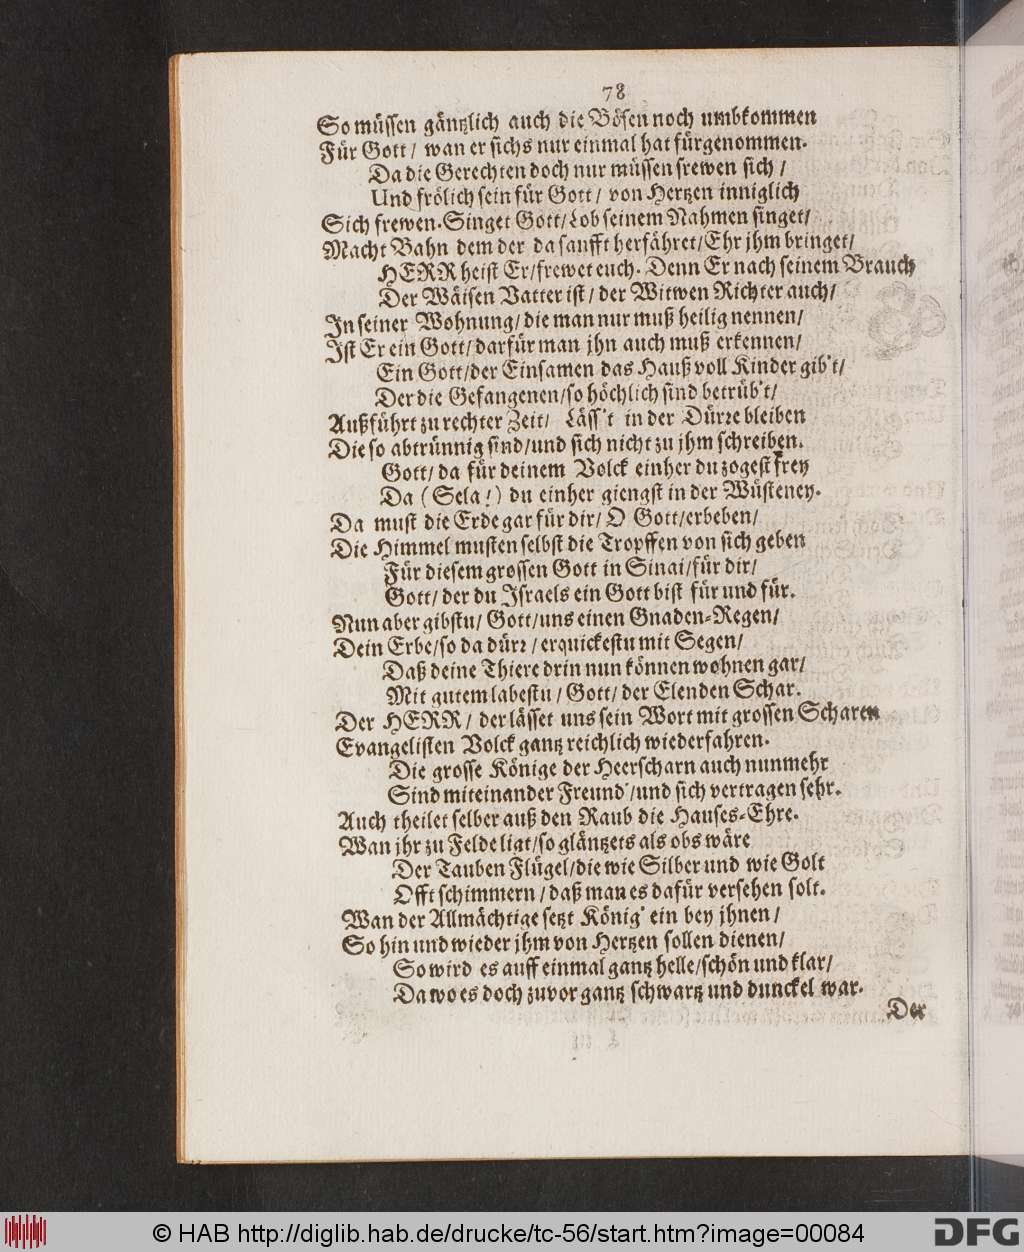 78
So müssen gäntzlich auch die Bösen noch umbkommen
Für Gott / wan er sichs nur einmal hat fürgenommen.
Da die Gerechten doch nur müssen frewen sich /
Und frölich sein für Gott / von Hertzen inniglich
Sich frewen. Singet Gott / Lob seinem Nahmen singet /
Macht Bahn dem der da saufft herfähret / Ehr jhm bringet /
HERR heist Er / frewet euch. Denn Er nach seinem Brauch
Der Wäisen Vatter ist / der Witwen Richter auch /
In seiner Wohnung / die man nur muß heilig nennen /
Ist Er ein Gott / darfür man jhn auch muß erkennen /
Ein Gott / der Einsamen das Hauß voll Kinder gib't /
Der die Gefangenen / so höchlich sind betrüb't /
Außführt zu rechter Zeit / Läss't in der Dürre bleiben
Die so abtrünnig sind / und sich nicht zu jhm schreiben.
Gott / da für deinem Volck einher du zogest frey
Da (Sela!) du einher giengst in der Wüsteney.
Da must die Erde gar für dir / O Gott / erbeben /
Die Himmel musten selbst die Tropffen von sich geben
Für diesem grossen Gott in Sinai / für dir /
Gott / der du Israels ein Gott bist für und für.
Nun aber gibstu / Gott / uns einen Gnaden-Regen /
Dein Erbe / so da dürr / erquickestu mit Segen /
Daß deine Thiere drin nun können wohnen gar /
Mit gutem labestu / Gott / der Elenden Schar.
Der HERR / der lässet uns sein Wort mit grossen Scharen
Evangelisten Volck gantz reichlich wiederfahren.
Die grosse Könige der Heerscharn auch nunmehr
Sind miteinander Freund' / und sich vertragen sehr.
Auch theilet selber auß den Raub die Hauses-Ehre.
Wan jhr zu Felde ligt / so gläntzets als obs wäre
Der Tauben Flügel / die wie Silber und wie Golt
Offt schimmern / daß man es dafür versehen solt.
Wan der Allmächtige setzt König' ein bey jhnen /
So hin und wieder jhm von Hertzen sollen dienen /
So wird es auff einmal gantz helle / schön und klar /
Da wo es doch zuvor gantz schwartz und dunckel war.
Der
© HAB http://diglib.hab.de/drucke/tc-56/start.htm?image=00084
DFG